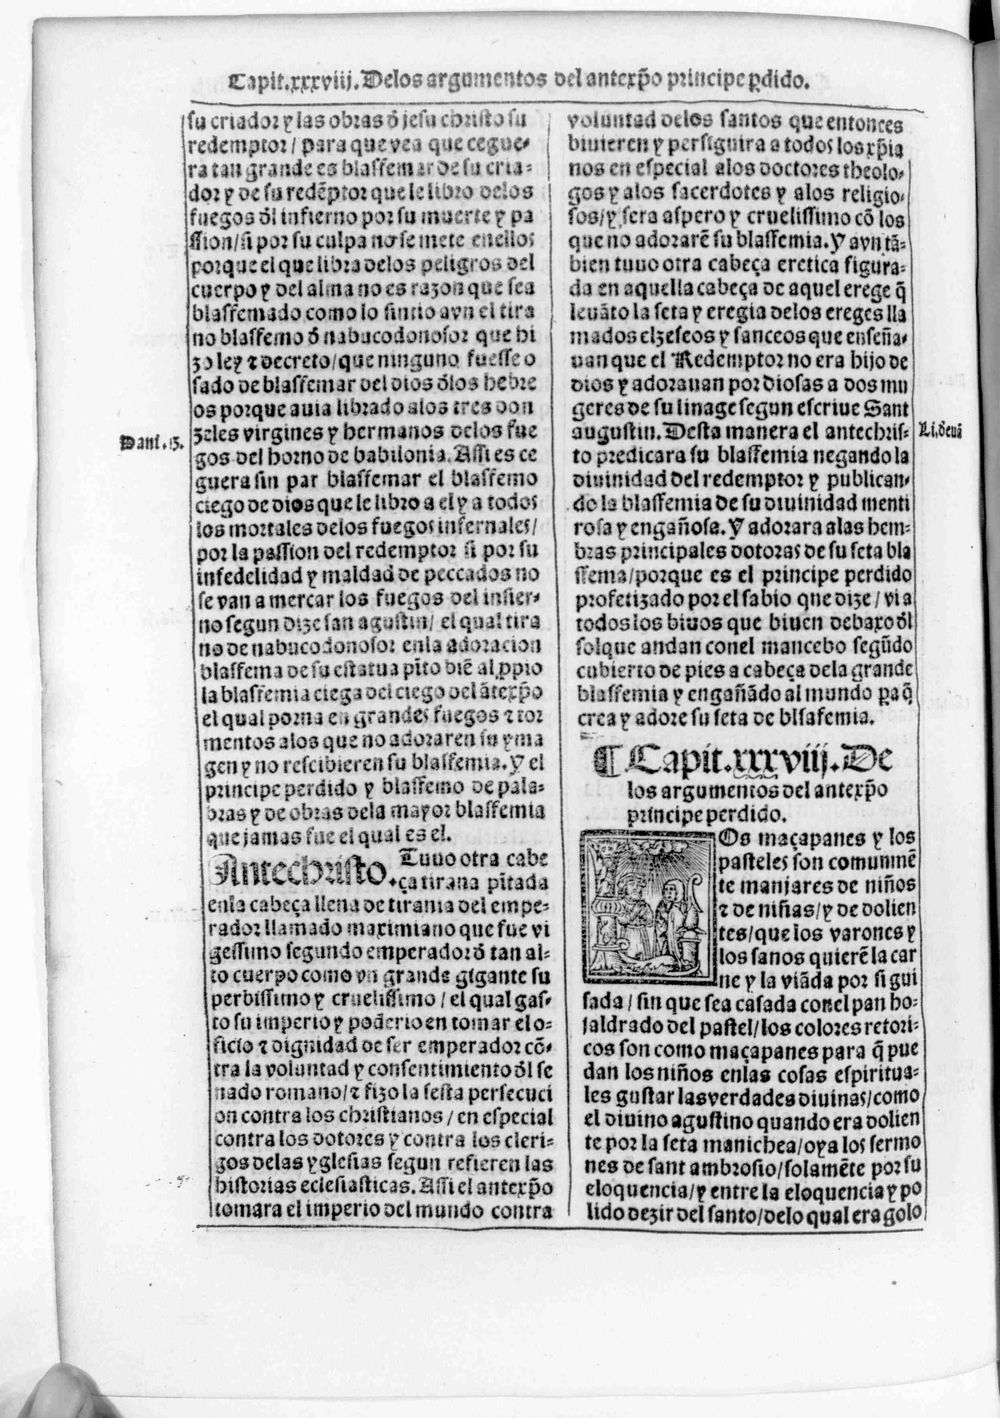 Capit.xxxviij. Delos argumentos del antexp̄o principe ꝑdido.
su criador y las obras d̄ jesu christo su
redemptor / para que vea que cegue-
ra tan grande es blasfemar de su cria-
dor y de su redēptor que le libro delos
fuegos d̄l infierno por su muerte y pa
ssion / si por su culpa no se mete enellos
porque el que libra delos peligros del
cuerpo y del alma no es razon que sea
blasfemado como lo sintio avn el tira
no blasfemo d̄ nabucodonosor que hi
zo ley ⁊ decreto / que ninguno fuesse o
sado de blasfemar del dios d̄los hebre
os porque auia librado alos tres don
zeles virgines y hermanos delos fue
Dani.3.
gos del horno de babilonia. Assi es ce
guera sin par blasfemar el blasfemo
ciego de dios que le libro a el y a todos
los mortales delos fuegos infernales /
por la passion del redemptor si por su
infedelidad y maldad de peccados no
se van a mercar los fuegos del infier-
no segun dize san agustin / el qual tira
no de nabucodonosor enla adoracion
blasfema de su estatua pīto biē al ꝓpio
la blasfemia ciega del ciego del ātexp̄o
el qual porna en grandes fuegos ⁊ tor
mentos alos que no adoraren su yma
gen y no rescibieren su blasfemia. Y el
principe perdido y blasfemo de pala-
bras y de obras dela mayor blasfemia
que jamas fue el qual es el.
Antechristo. Tuuo otra cabe
ça tirana pītada
enla cabeça llena de tirania del empe-
rador llamado maximiano que fue vi
gessimo segundo emperador d̄ tan al-
to cuerpo como vn grande gigante su
perbissimo y cruelissimo / el qual gas-
to su imperio y poderio en tomar el o-
ficio ⁊ dignidad de ser emperador cō-
tra la voluntad y consentimiento d̄l se
nado romano / ⁊ fizo la sesta persecuci
on contra los christianos / en especial
contra los dotores y contra los cleri-
gos delas yglesias segun refieren las
historias eclesiasticas. Assi el antexp̄o
tomara el imperio del mundo contra
voluntad delos santos que entonces
biuieren y persiguira a todos los xp̄ia
nos en especial alos doctores theolo-
gos y alos sacerdotes y alos religio-
sos / y sera aspero y cruelissimo cō los
que no adorarē su blasfemia. Y avn tā-
bien tuuo otra cabeça eretica figura-
da en aquella cabeça de aquel erege q̄
leuāto la seta y eregia delos ereges lla
mados elzeseos y sanceos que enseña-
uan que el Redemptor no era hijo de
dios y adorauan por diosas a dos mu
geres de su linage segun escriue Sant
augustin. Desta manera el antechris-
Li.d̄ euā
to predicara su blasfemia negando la
diuinidad del redemptor y publican-
do la blasfemia de su diuinidad menti
rosa y engañosa. Y adorara alas hem-
bras principales dotoras de su seta bla
sfema / porque es el principe perdido
profetizado por el sabio que dize / vi a
todos los biuos que biuen debaxo d̄l
sol que andan conel mancebo segūdo
cubierto de pies a cabeça dela grande
blasfemia y engañādo al mundo ꝑa q̄
crea y adore su seta de blsafemia.
¶ Capit.xxxviij. De
los argumentos del antexp̄o
principe perdido.
Os maçapanes y los
pasteles son comunmē
te manjares de niños
⁊ de niñas / y de dolien
tes / que los varones y
los sanos quierē la car
ne y la viāda por si gui
sada / sin que sea casada conel pan ho-
jaldrado del pastel / los colores retori-
cos son como maçapanes para q̄ pue
dan los niños enlas cosas espiritua-
les gustar las verdades diuinas / como
el diuino agustino quando era dolien
te por la seta manichea / oya los sermo
nes de sant ambrosio / solamēte por su
eloquencia / y entre la eloquencia y po
lido dezir del santo / delo qual era golo